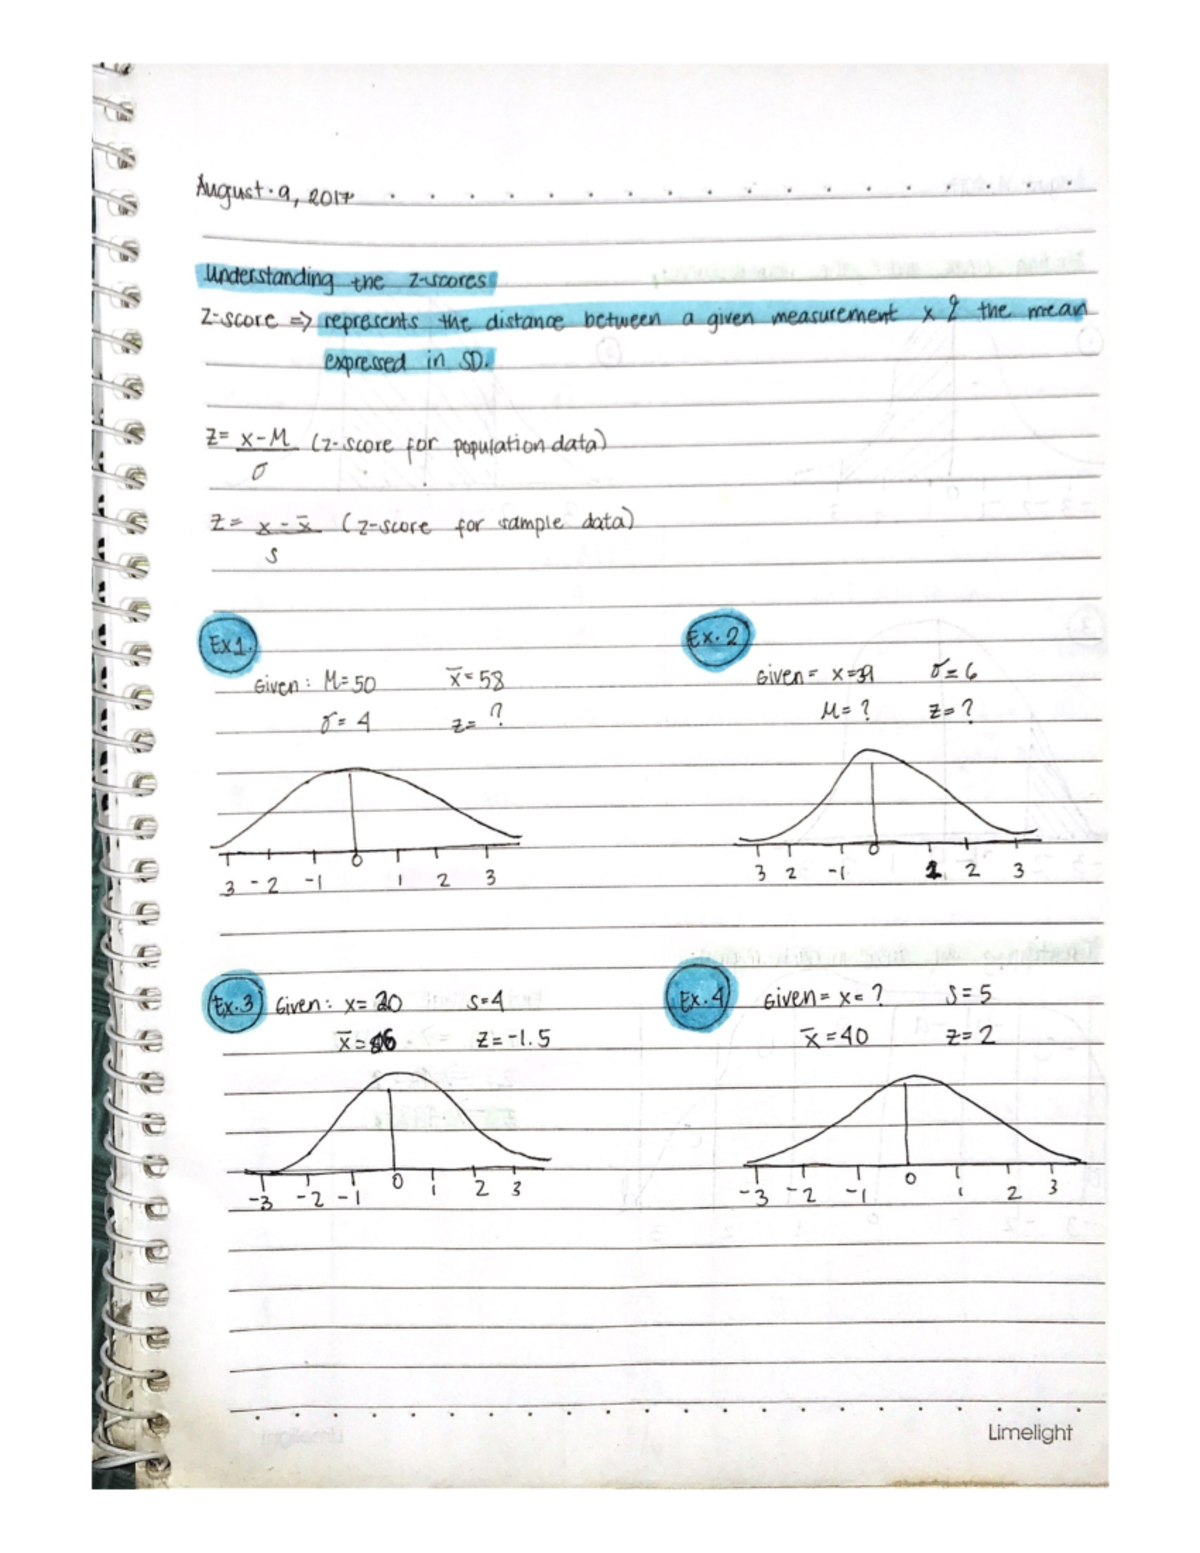 August 9, 2017
Understanding the z-scores
Z-score => represents the distance between a given measurement x & the mean
expressed in SD.
Z= x-M (z-score for population data)
σ
Z= x-x̄ (z-score for sample data)
s
Ex1.
Given: M=50 x̄=58
σ=4 z=?
Ex.2
Given= x=39 σ=6
M=? Z=?
3 -2 -1 0 1 2 3
3 2 -1 0 1 2 3
Ex.3 Given: x=20 s=4
x̄= Z=-1.5
Ex.4 Given= x=? S=5
x̄=40 Z=2
-3 -2 -1 0 1 2 3
-3 -2 -1 0 1 2 3
Limelight